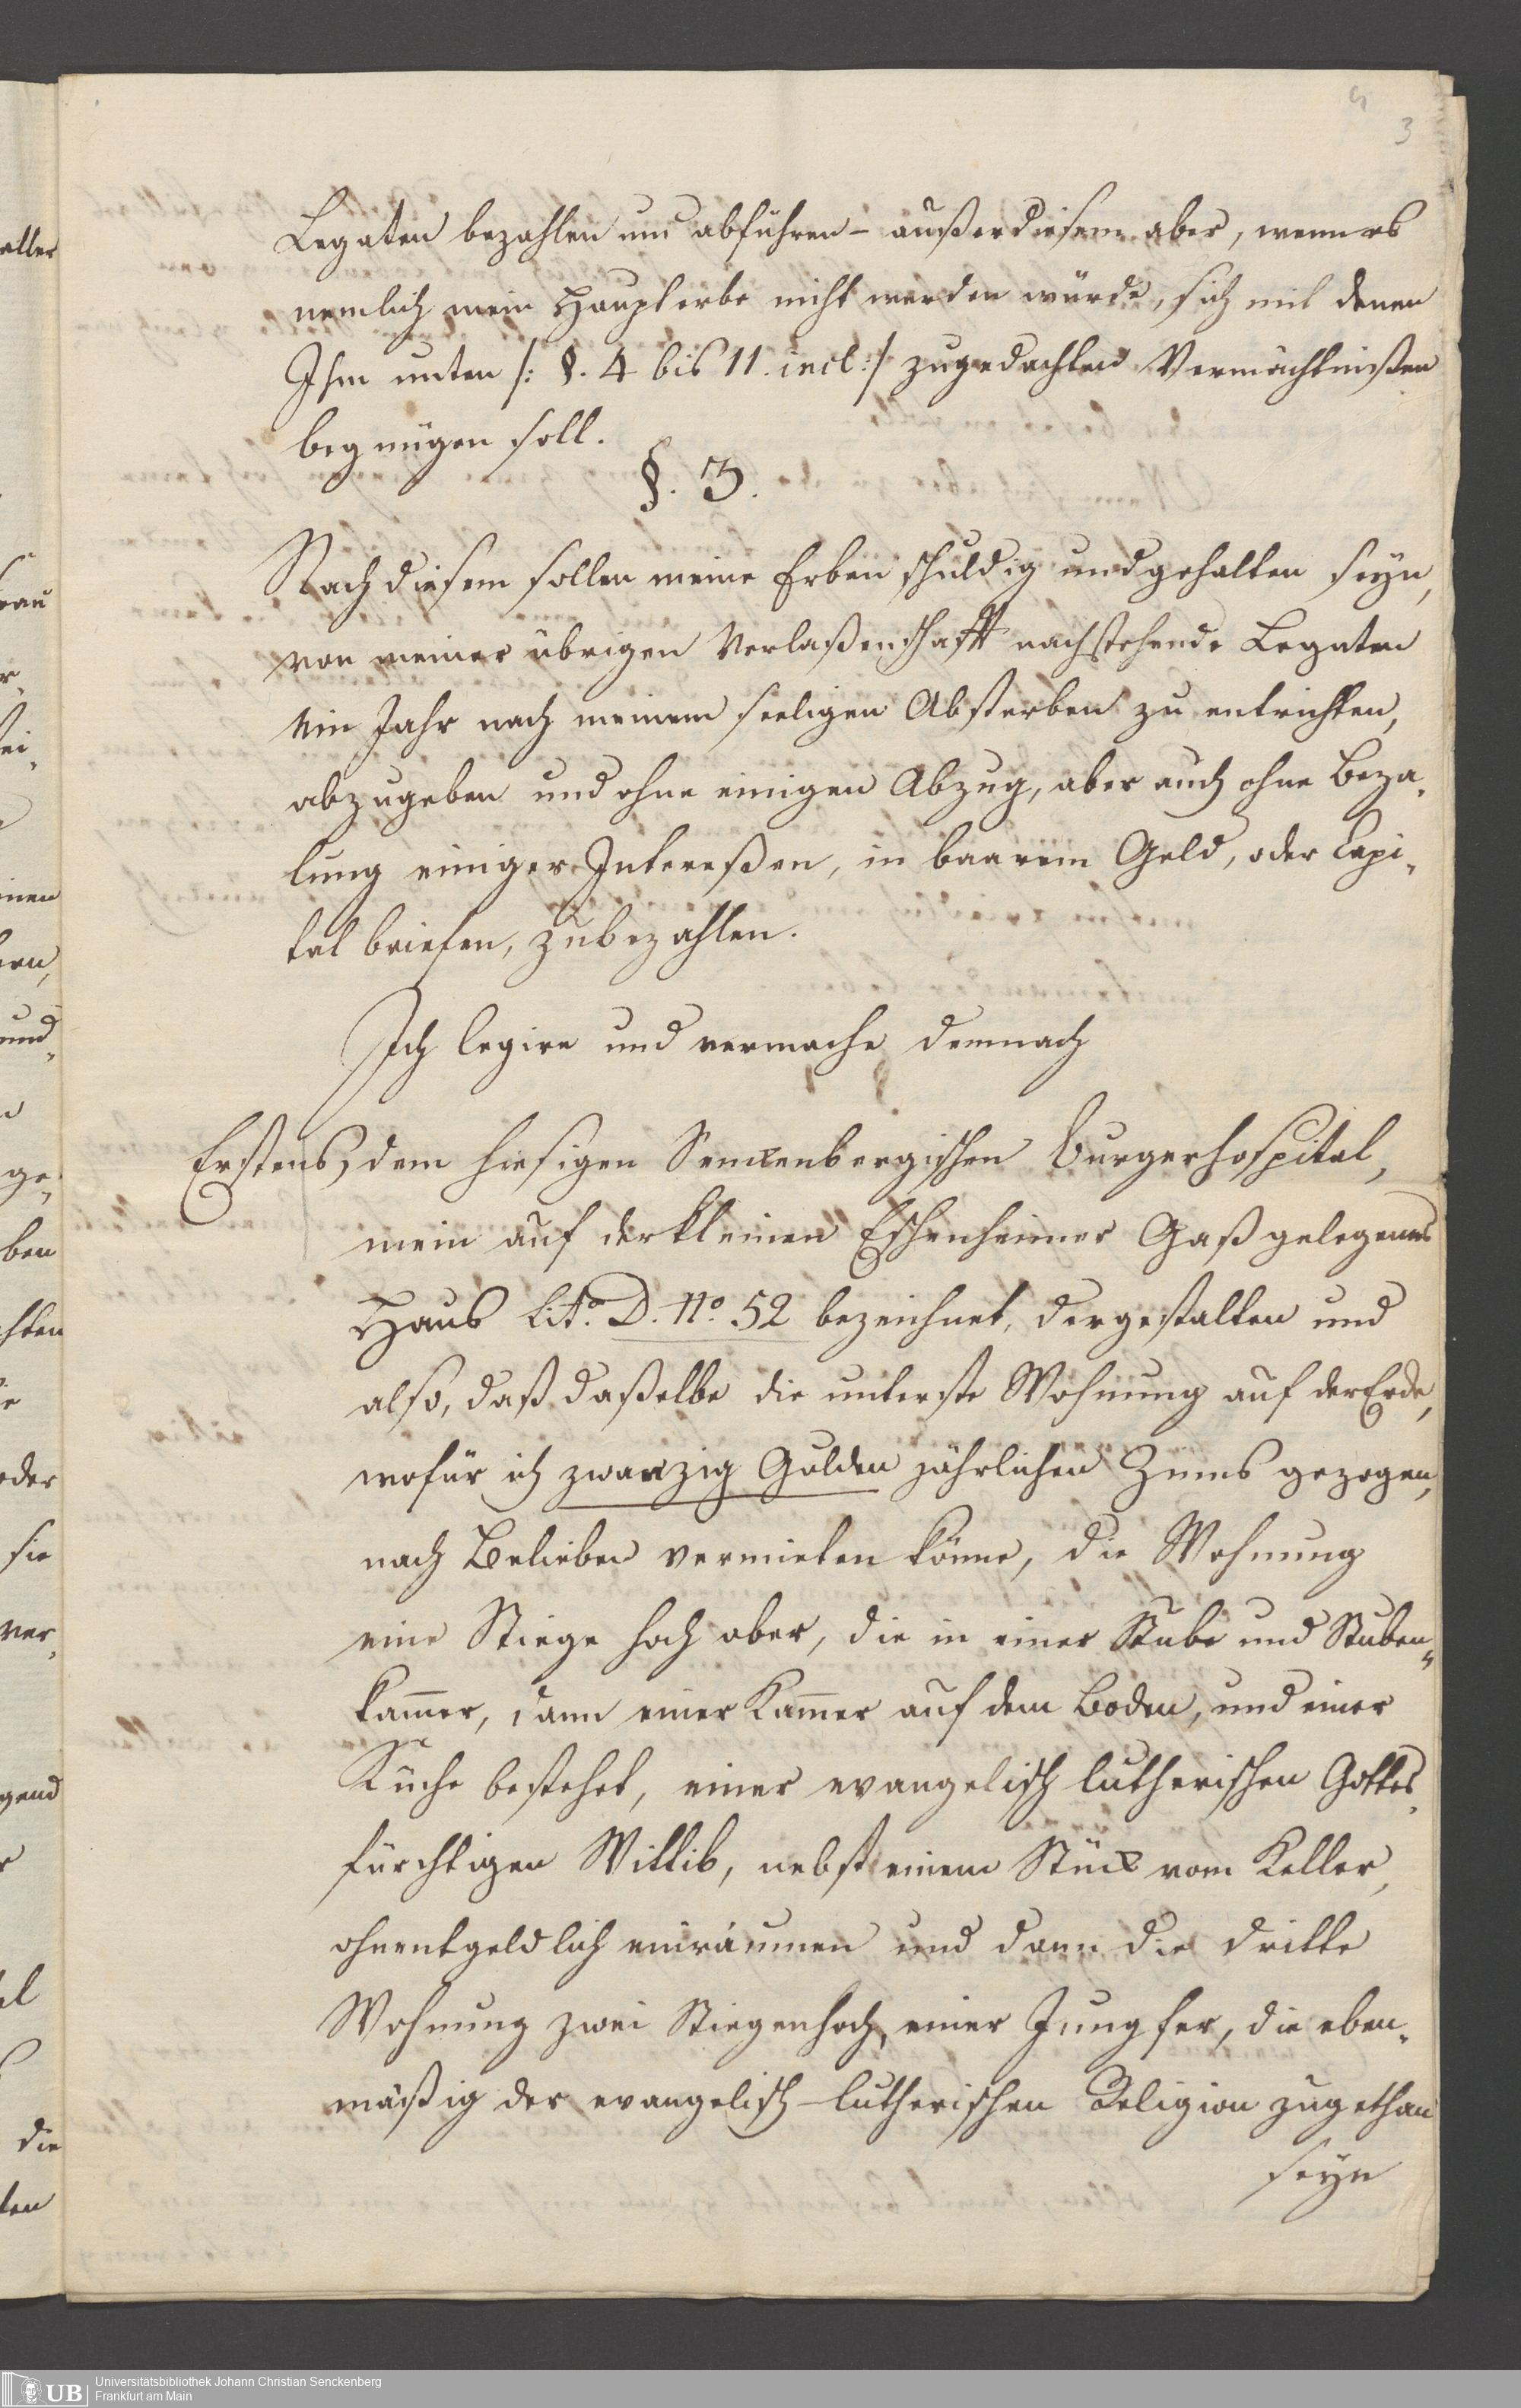 3
Legaten bezahlen und abführen - außer diesem aber, wenn es
nemlich mein Haupterbe nicht werden würde, sich mit denen
Ihm unten /: §. 4 bis 11. incl:/ zugedachten Vermächtnißen
begnügen soll.
§. 3.
Nach diesem sollen meine Erben schuldig und gehalten seyn,
von meiner übrigen Verlaßenschafft nachstehende Legaten
ein Jahr nach meinem seeligen Absterben zu entrichten,
abzugeben und ohne einigen Abzug, aber auch ohne Beza„
lung einiger Intereßen, in baarem Geld, oder Capi„
tal briefen, zubezahlen.
Ich legire und vermache demnach
Erstens, dem hiesigen Senckenbergischen Burgerhospital,
mein auf der kleinen Eschenheimer Gaß gelegenes
Haus Lit.º D. Nº. 52 bezeichnet, dergestalten und
also, daß daßelbe die unterste Wohnung auf der Erde,
wofür ich zwanzig Gulden jährlichen Zinns gezogen,
nach Belieben vermieten könne, die Wohnung
eine Stiege hoch aber, die in einer Stube und Stuben„
kam̄er, dann einer Kam̄er auf dem Boden, und einer
Küche bestehet, einer evangelisch lutherischen Gottes„
fürchtigen Wittib, nebst einem Stück vom Keller,
ohnentgeldlich einräumen und dann die dritte
Wohnung zwei Stiegen hoch, einer Jungfer, die eben„
mäßig der evangelisch-lutherischen Religion zugethan
seyn
aller
inen
und„
ge„
ben
oder
sie
ver„
die
ten
Universitätsbibliothek Johann Christian Senckenberg
Frankfurt am Main
UB